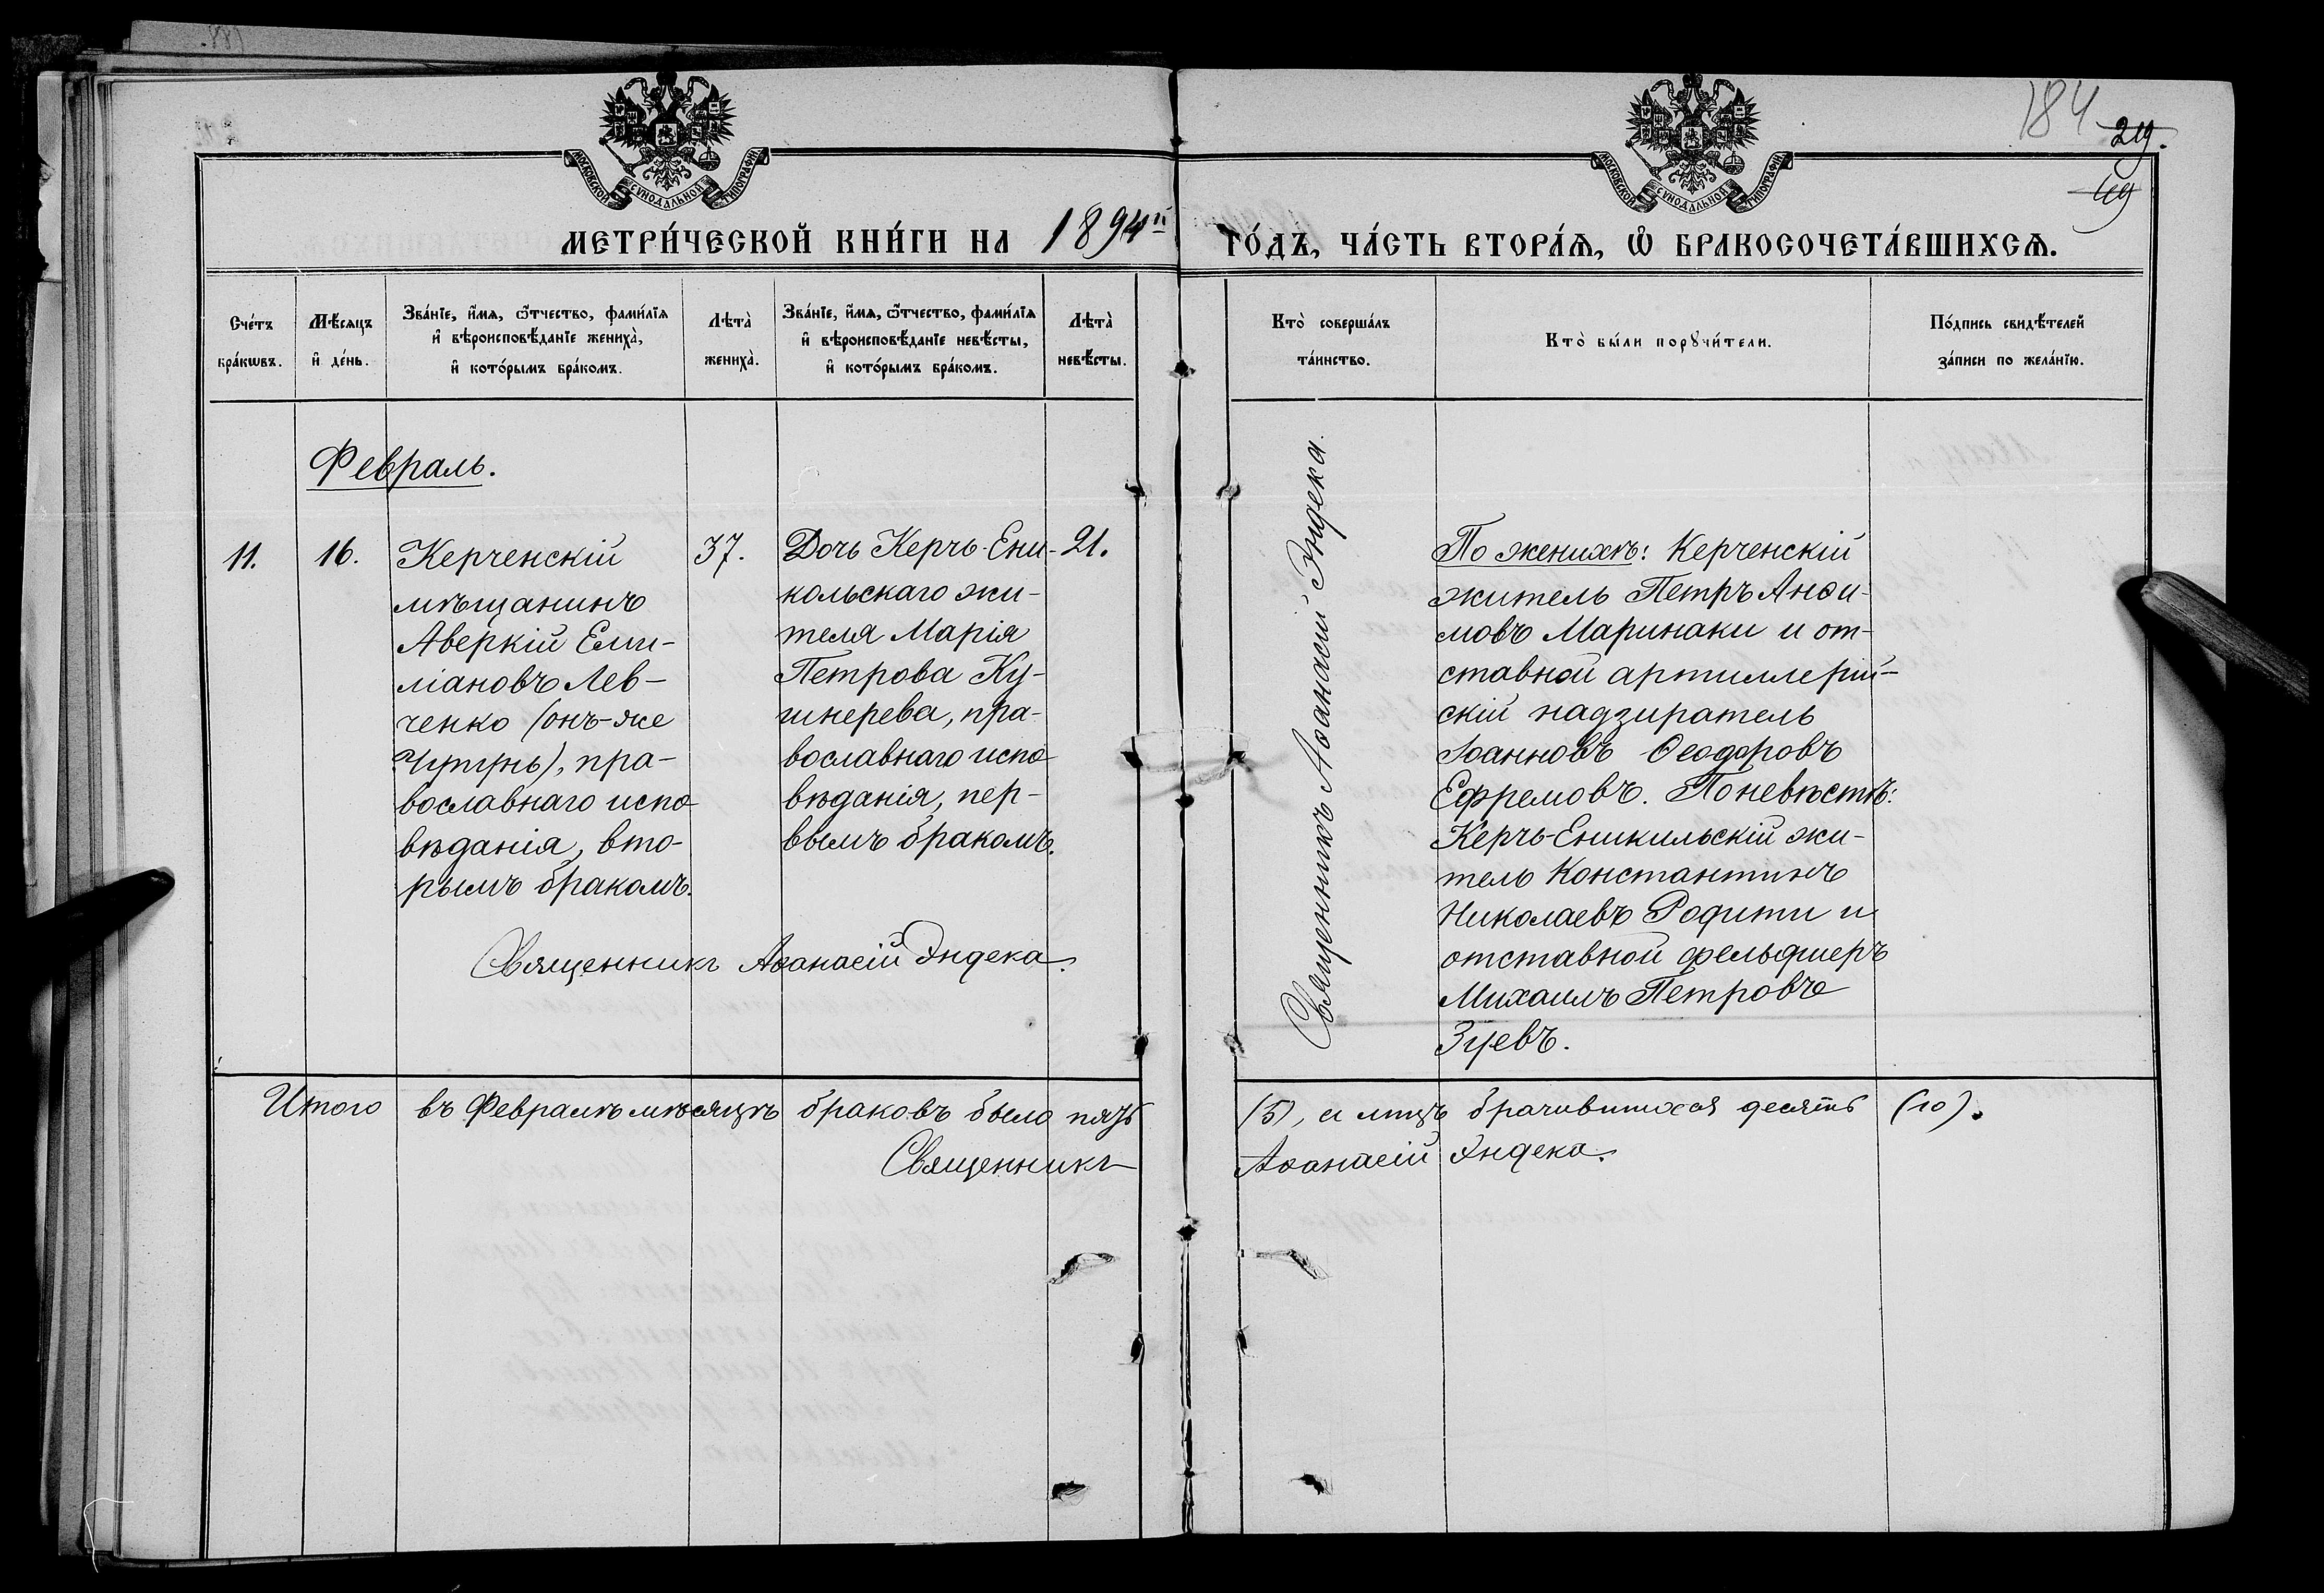 184
29.
49
МОСКОВСКОЙ СѴНОДАЛЬНОЙ ТИПОГРАФІИ
МОСКОВСКОЙ СѴНОДАЛЬНОЙ ТИПОГРАФІИ
МЕТРИ́ЧЕСКОЙ КНИ́ГИ НА 1894й ГО́ДЪ, ЧА́СТЬ ВТОРА́Ѧ, Ѽ БРАКОСОЧЕТА́ВШИХСѦ.
Сче́тъ
бра́кѡвъ.
Мѣ́сѧцъ
и҆ де́нь.
Зва́нїе, и҆́мѧ, ѻ҆́тчество, фами́лїѧ
и҆ вѣроисповѣ́данїе жениха̀,
и҆ кото́рымъ бра́комъ.
Лѣта̀
жениха̀.
Зва́нїе, и҆́мѧ, ѻ҆́тчество, фами́лїѧ
и҆ вѣроисповѣ́данїе невѣ́сты,
и҆ кото́рымъ бра́комъ.
Лѣта̀
невѣ́сты.
Кто̀ соверша́лъ
та́инство.
Кто̀ бы́ли порꙋчи́тели.
По́дпись свидѣ́телей
за́писи по жела́нїю.
Февраль.
11.
16.
Керченскій
мѣщанинъ
Аверкій Еми-
ліановъ Лев-
ченко (онъ-же
Чугунъ), пра-
вославнаго испо-
вѣданія, вто-
рымъ бракомъ.
37.
Дочь Керчь-Ени-
кольскаго жи-
теля Марія
Петрова Ку-
шнерева, пра-
вославнаго испо-
вѣданія, пер-
вымъ бракомъ.
21.
Священникъ Аѳанасій Эндека.
Священникъ Аѳанасій Эндека.
По женихѣ: Керченскій
житель Петръ Анѳи-
мовъ Маринаки и от-
ставной артиллерій-
скій надзиратель
Іоанновъ Ѳеодоровъ
Ефремовъ. По невѣстѣ:
Керчь-Еникильскій жи-
тель Константинъ
Николаевъ Родити и
отставной фельдшеръ
Михаилъ Петровъ
Зуевъ.
Итого въ Февралѣ мѣсяцѣ браковъ было пять (5), а лицъ брачившихся десять (10).
Священникъ Аѳанасій Эндека.